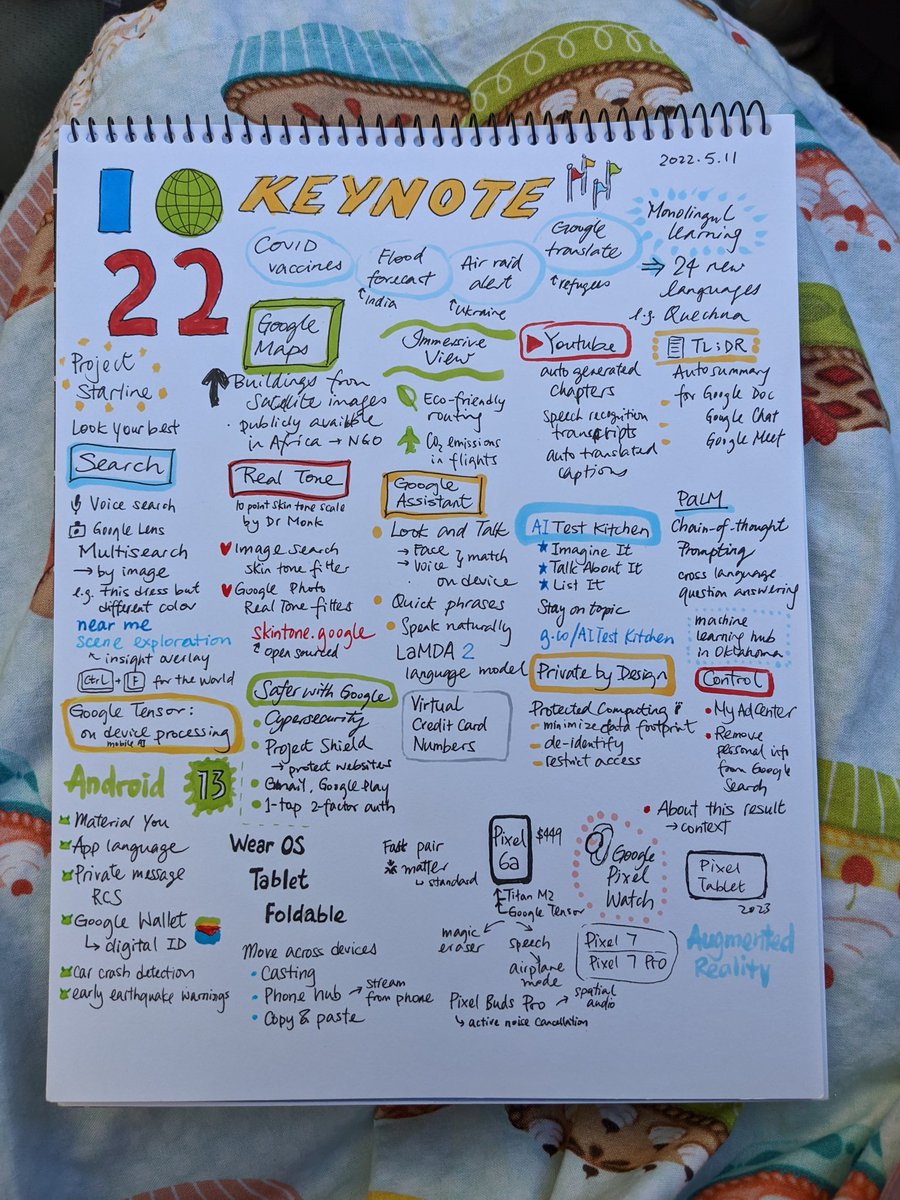 I O KEYNOTE
2022.5.11
22
COVID
vaccines
Flood
forecast
↑India
Air raid
alert
↑Ukraine
Google
translate
↑refugees
Monolingul
learning
⇒ 24 new
languages
e.g. Quechna
Project
Starline
Look your best
Google
Maps
Buildings from
Satellite images
publicly availble
in Africa → NGO
Immersive
View
Eco-friendly
routing
CO₂ emissions
in flights
Youtube
auto generated
chapters
speech recognition
transcripts
auto translated
captions
TL;DR
Autosummary
for Google Doc
Google Chat
Google Meet
Search
Voice search
Google Lens
Multisearch
→ by image
e.g. this dress but
different color
near me
scene exploration
insight overlay
Ctrl + F for the world
Real Tone
10 point skin tone scale
by Dr Monk
Image search
skin tone filter
Google Photo
Real Tone filtes
skintone.google
open sourced
Google
Assistant
Look and Talk
→ Face
→ Voice } match
on device
Quick phrases
Speak naturally
LaMDA 2
language model
AI Test Kitchen
★ Imagine It
★ Talk About It
★ List It
Stay on topic
g.co/AITestKitchen
PaLM
Chain-of-thought
Prompting
cross language
question answering
machine
learning hub
in Oklahoma
Google Tensor:
on device processing
mobile AI
Safer with Google
• Cybersecurity
• Project Shield
→ protect websites
• Gmail, Google Play
• 1-tap 2-factor auth
Virtual
Credit Card
Numbers
Private by Design
Protected Computing
minimize data footprint
de-identify
restrict access
Control
• My AdCenter
• Remove
personal info
from Google
Search
• About this result
→ context
Android 13
Material You
App language
Private message
RCS
Google Wallet
↳ digital ID
car crash detection
early earthquake warnings
Wear OS
Tablet
Foldable
Move across devices
• Casting
• Phone hub → stream
from phone
• Copy & paste
Fast pair
matter
↳ standard
Pixel
6a
$449
Titan M2
Google Tensor
magic
eraser
speech
airplane
mode
Google
Pixel
Watch
Pixel 7
Pixel 7 Pro
Pixel Buds Pro → spatial
audio
↳ active noise cancellation
Pixel
Tablet
2023
Augmented
Reality